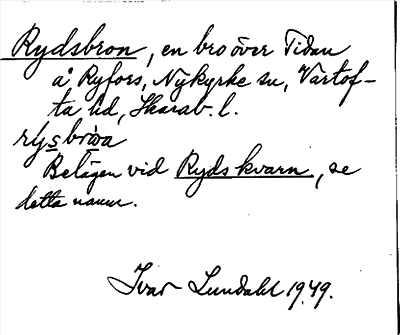 Rydsbron, en bro över Tidan
å Ryfors, Nykyrke sn, Vartof-
ta hd, Skarab. l.
rysbrωa
Belägen vid Ryds kvarn, se
detta namn.
Ivar Lundahl 1949.